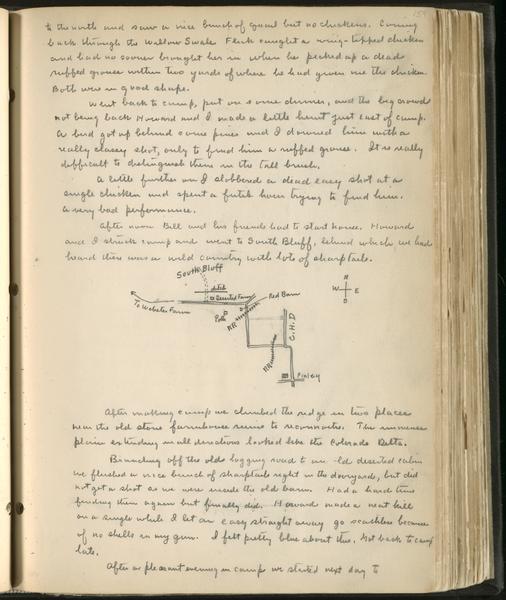 159
to the north and saw a nice bunch of quail but no chickens. Coming
back through the Willow Swale Flick caught a wing-tipped chicken
and had no sooner brought her in when he picked up a dead
ruffed grouse within two yards of where he had given me the chicken.
Both were in good shape.
Went back to camp, put on some dinner, and the big crowd
not being back Howard and I made a little hunt just east of camp.
A bird got up behind some pines and I downed him with a
really classy shot, only to find him a ruffed grouse. It is really
difficult to distinguish them in the tall brush.
A little further on I slobbered a dead easy shot at a
single chicken and spent a futile hour trying to find him.
A very bad performance.
After noon Bill and his friends had to start home. Howard
and I struck camp and went to South Bluff, behind which we had
heard there was a wild country with lots of sharptails.
South Bluff
ditch
Deserted Farm
Red Barn
To Webster Farm
RR
C.H.D
RR
Finley
N
W E
S
After making camp we climbed the ridge in two places
near the old stone farmhouse ruins to reconnoitre. The immense
plain extending in all directions looked like the Colorado Delta.
Branching off the old logging road to an old deserted cabin
we flushed a nice bunch of sharptails right in the dooryard, but did
not get a shot as we were inside the old barn. Had a hard time
finding them again but finally did. Howard made a neat kill
on a single while I let an easy straight away go scatheless because
of no shells in my gun. I felt pretty blue about this. Got back to camp
late.
After a pleasant evening in camp we started next day to